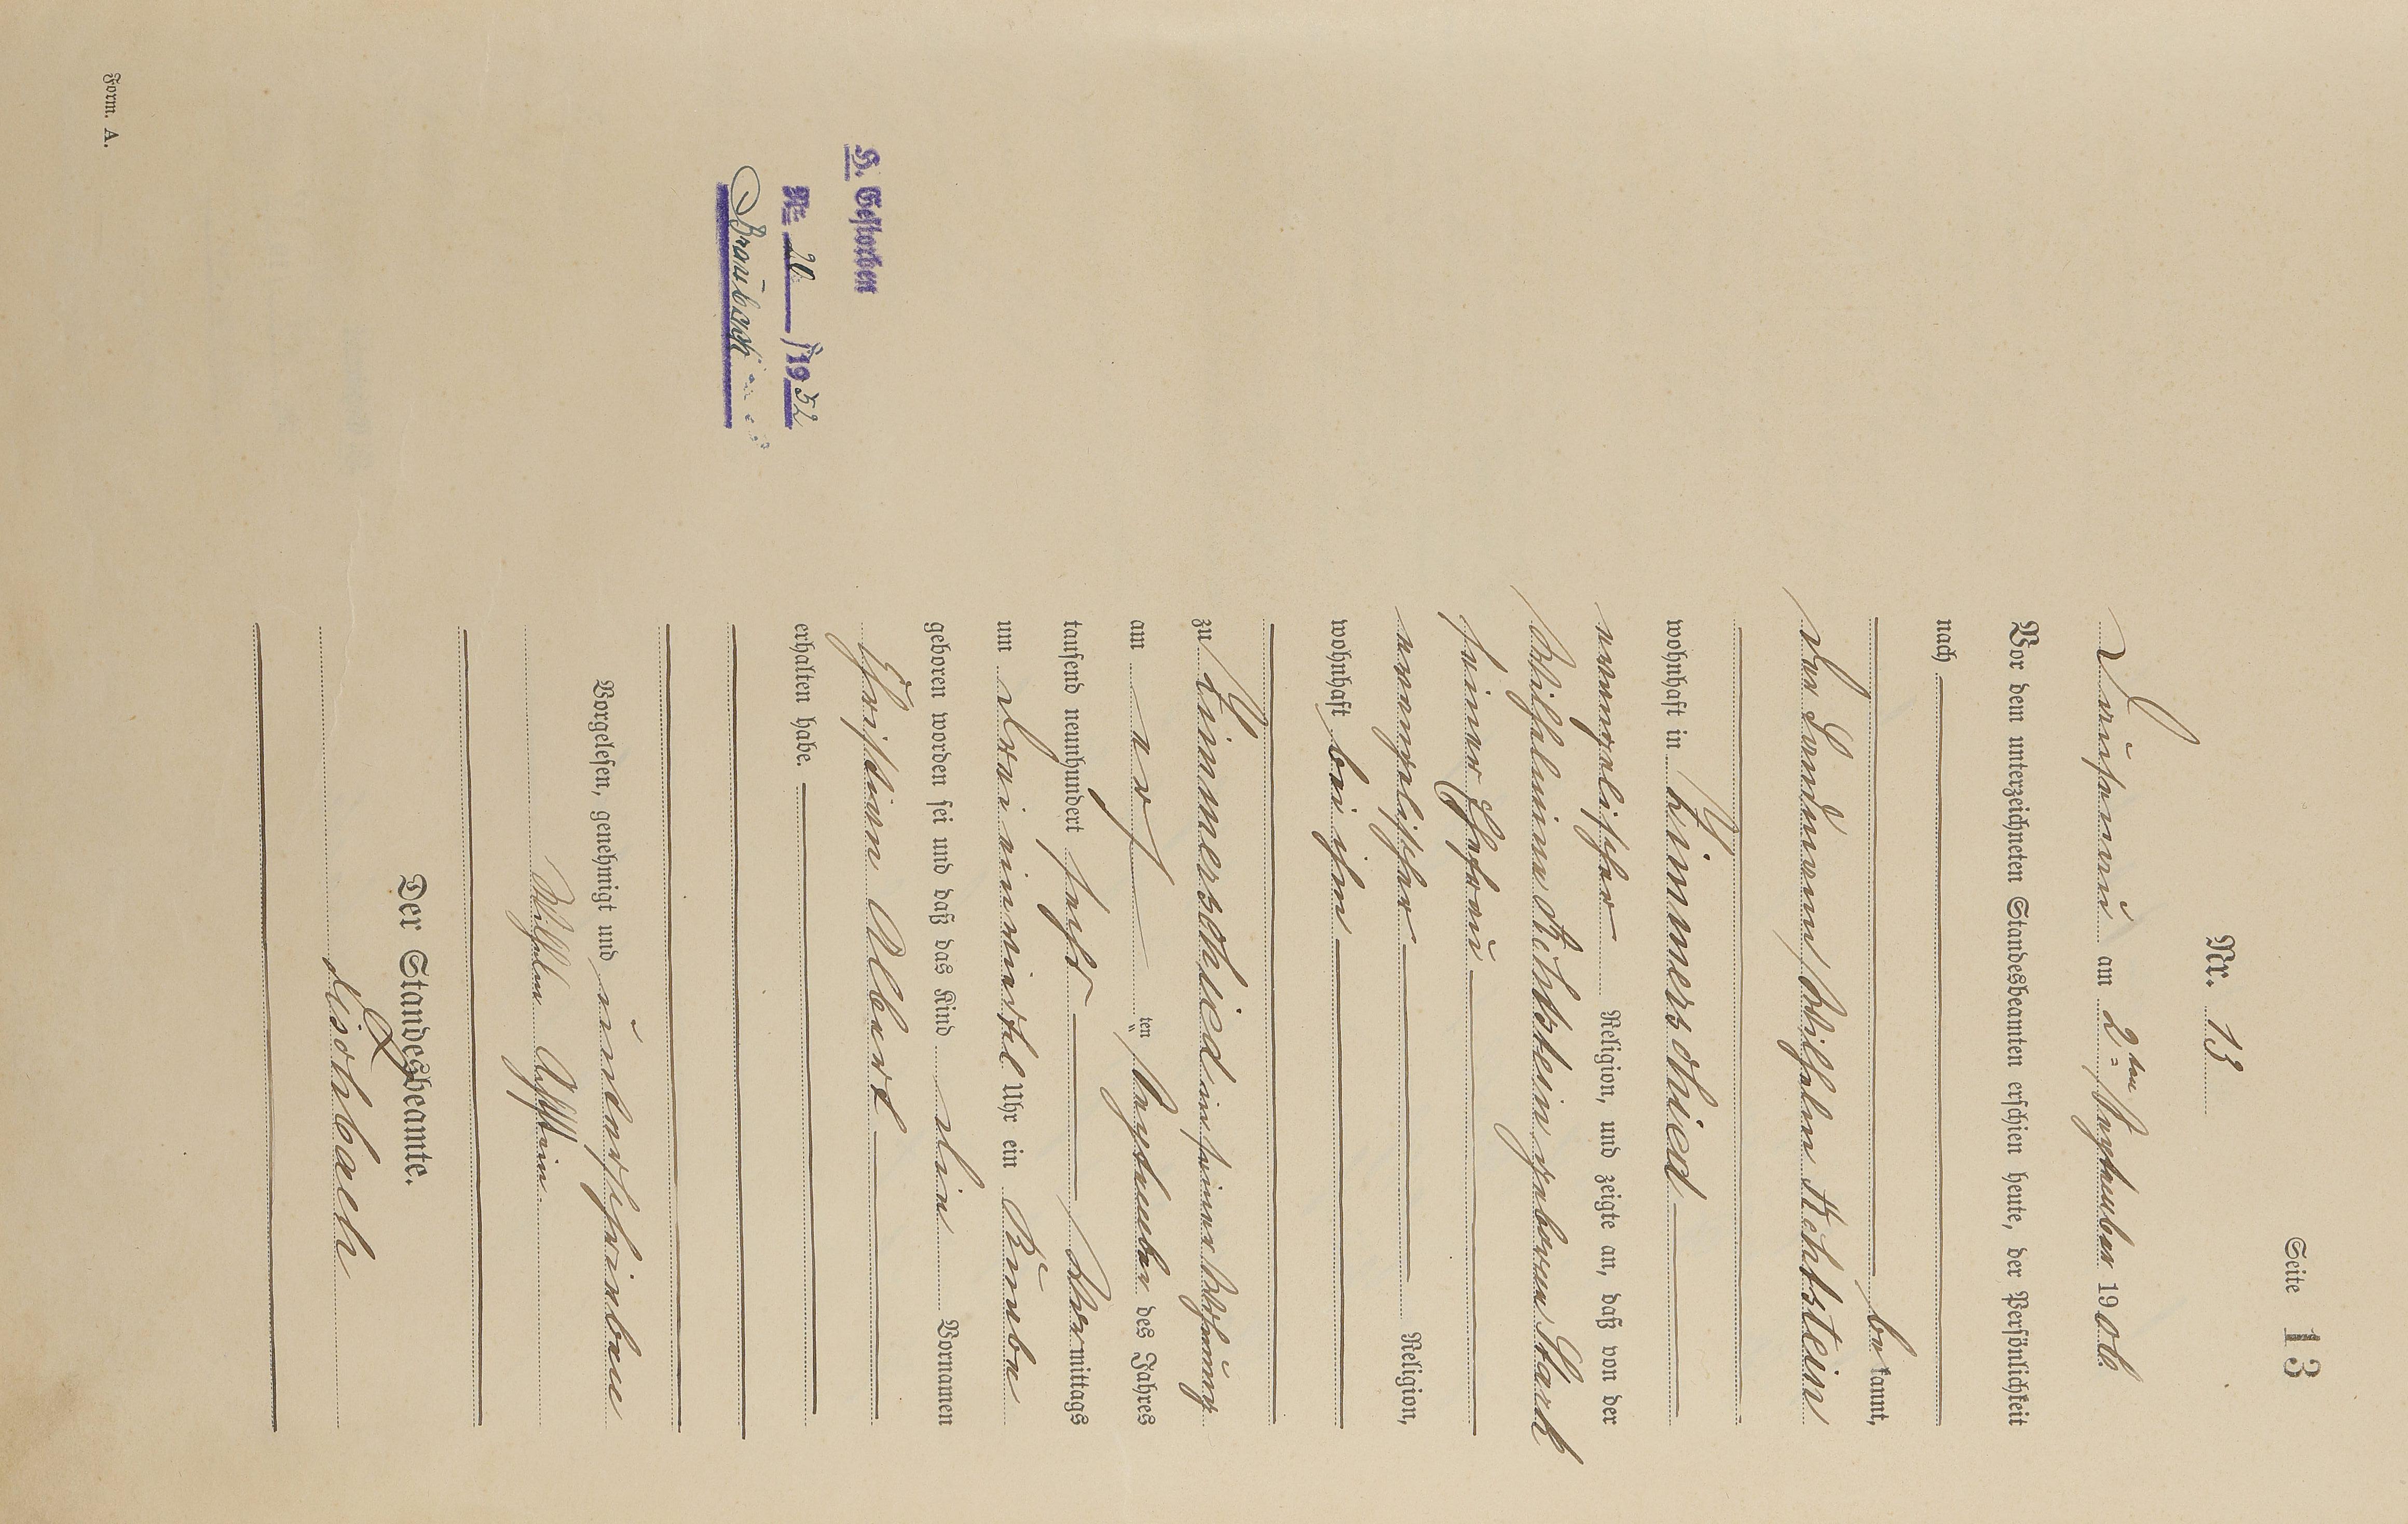 Seite 13
Nr. 13
Dausenau am 2ten September 1906
Vor dem unterzeichneten Standesbeamten erschien heute, der Persönlichkeit
nach
bekannt,
der Landmann Wilhelm Aechtstein
wohnhaft in Zimmerschied
evangelischer Religion, und zeigte an, daß von der
Wilhelmine Aechtstein geborene Stark
seiner Ehefrau
evangelischer Religion,
wohnhaft bei ihm
zu Zimmerschied in seiner Wohnung
am ersten September des Jahres
tausend neunhundert sechs Vormittags
um drei einviertel Uhr ein Knabe
geboren worden sei und daß das Kind die Vornamen
Christian Albert
erhalten habe.
Vorgelesen, genehmigt und unterschrieben
Wilhelm
Der Standesbeamte.
H. Gestorben
Nr. 20 /1952
Braubach
Form. A.